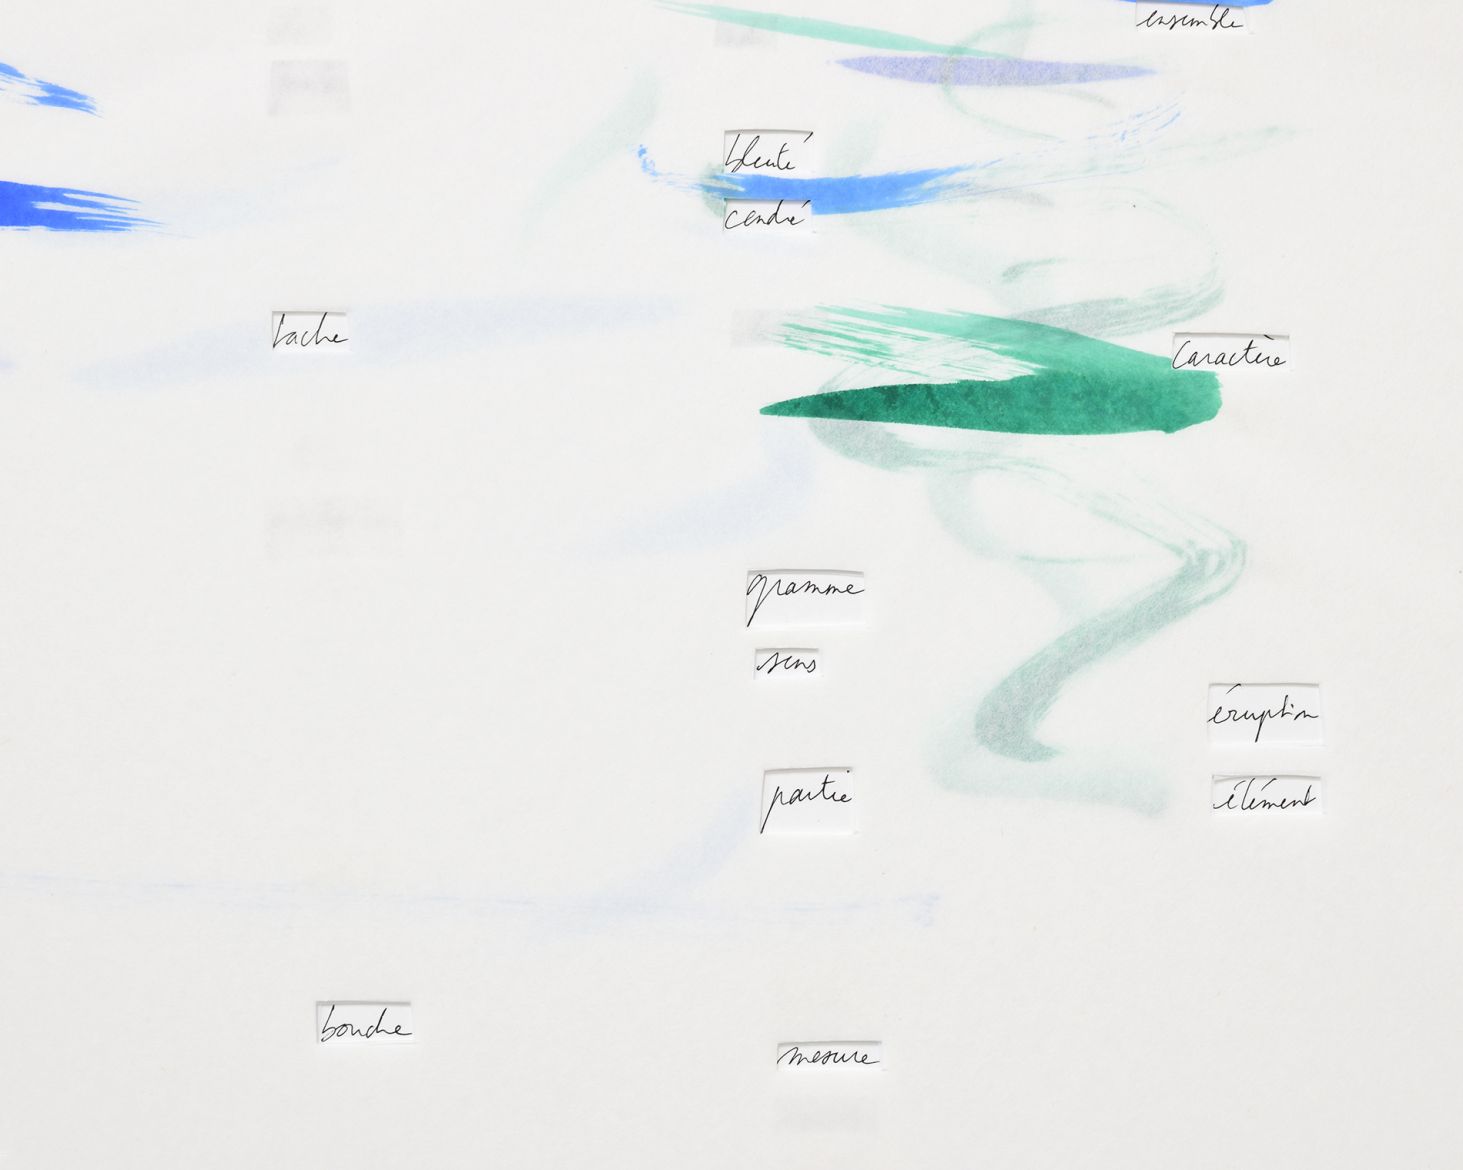 ensemble
bleuté
cendré
tache
caractère
gramme
sens
éruption
partie
élément
bouche
mesure